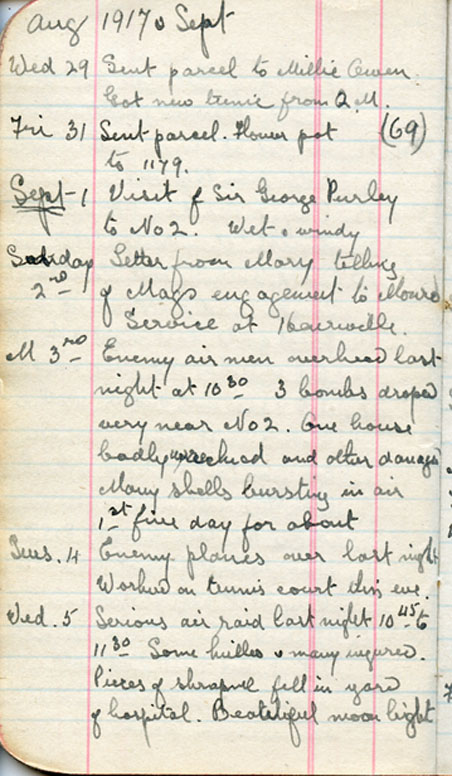 Aug 1917 & Sept
Wed 29 Sent parcel to Millie Owen.
Got new tunic from Q.M.
Fri 31 Sent parcel. Flower pot (69)
to 1179.
Sept 1 Visit of Sir George Purley
to No 2. Wet & windy
Sunday Letter from Mary telling
2nd of Mags engagement to
Service at
M 3rd Enemy air men overhead last
night at 10 30 3 bombs droped
very near No 2. One house
badly wrecked and other damage
Many shells bursting in air
1st fine day for about
Tues. 4 Enemy planes over last night
Worked on tennis court this eve.
Wed. 5 Serious air raid last night 10 45 to
11 30 Some killed & many injured.
Pieces of shrapnel fell in yard
of hospital. Beatetiful moon light